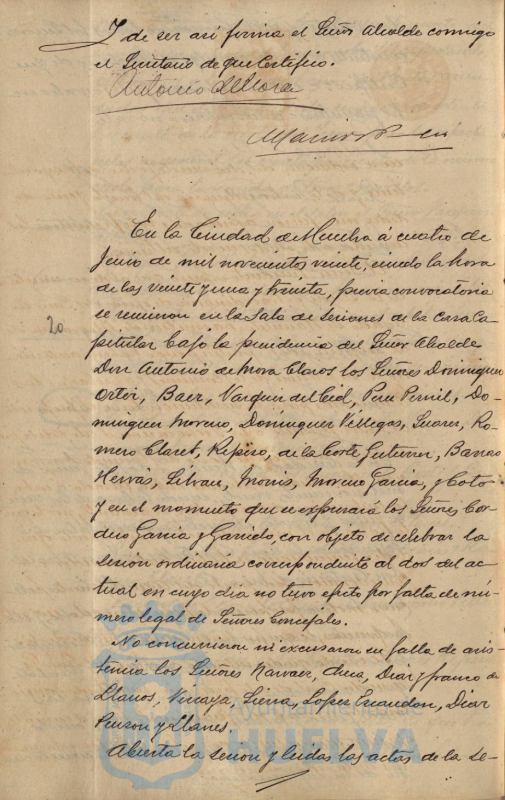 Y de ser así firma el Señor Alcalde conmigo
el Secretario de que certifico.
Antonio de Mora

En la Ciudad de Huelva á cuatro de
Junio de mil novecientos veinte, siendo la hora
de las veinte y una y treinta, previa convocatoria
20
se reunieron en la Sala de Sesiones de la Casa Ca-
pitular bajo la presidencia del Señor Alcalde
Don Antonio de Mora Claros los Señores Dominguez
Ortiz, Baez, Vazquez del Cid, Pern, Do-
minguez Moreno, Dominguez Villegas, Suarez, Ro-
mero Claret, Répiso, de la Corte Gutierrez, Barras
Hervás, Silvan, Morris, Moreno Garcia, y Coto
y en el momento que se expresará los Señores Cor-
dero Garcia y Garrido, con objeto de celebrar la
sesión ordinaria correspondiente al dos del ac-
tual en cuyo dia no tuvo efecto por falta de nú-
mero legal de Señores Concejales.
No concurrieron ni excusaron su falta de asis-
tencia los Señores Narvaez, Diaz y Franco de
Llanos, Vizcaya, Sierra, Lopez Escandon, Diaz
Pinzon y Llanes.
Abierta la sesion y leidas las actas de la se-
Ayuntamiento de
HUELVA